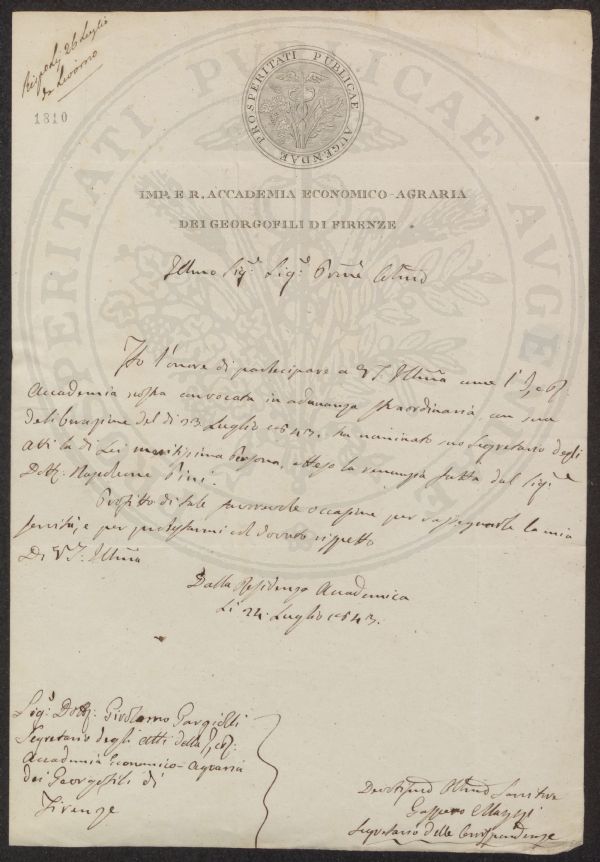 Rispo. 26 Luglio
da Livorno
1810
PROSPERITATI PUBLICAE AUGENDAE
IMP. E R. ACCADEMIA ECONOMICO-AGRARIA
DEI GEORGOFILI DI FIRENZE.
Illmo Sig.e Sig.e Prone Colmo
Ho l'onore di partecipare a V.S. Illma come l'I. e R.
Accademia nostra convocata in adunanza straordinaria, con sua
deliberazione del dì 23 Luglio 1843. ha nominato suo Segretario degli
Atti la di Lei meritissima Persona, atteso la renunzia fatta dal Sig.e
Dott. Napoleone Pini.
Profitto di tale favorevole occasione per rassegnarle la mia
servitù, e per protestarmi col dovuto rispetto
Di V.S. Illma
Dalla Residenza Accademica
Li 24. Luglio 1843.
Sig.e Dott. Girolamo Gargiolli
Segretario degli Atti della I. e R.
Accademia Economico-Agraria
dei Georgofili di
Firenze
Devotis.mo Obb.mo Servitore
Gaspero Mazzi
Segretario delle Corrispondenze